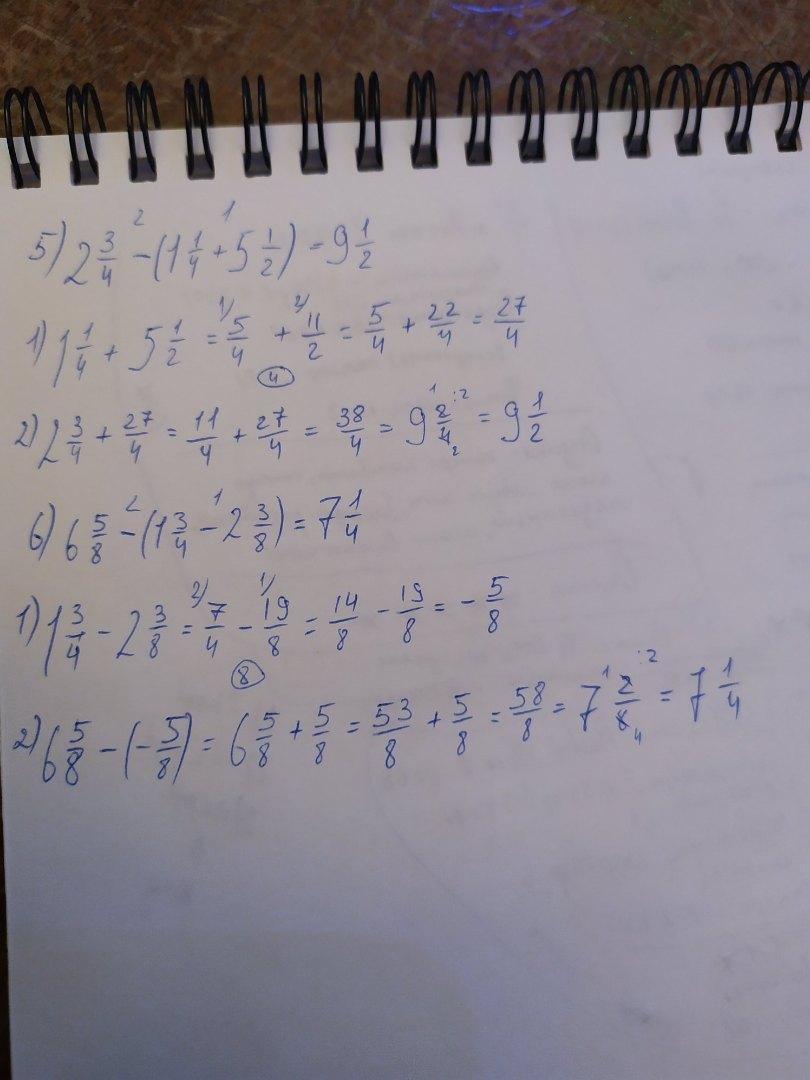 5) 2 3/4 - (1 1/4 + 5 1/2) = 9 1/2
1) 1 1/4 + 5 1/2 = 5/4 + 11/2 = 5/4 + 22/4 = 27/4
2) 2 3/4 + 27/4 = 11/4 + 27/4 = 38/4 = 9 2/4 = 9 1/2
6) 6 5/8 - (1 3/4 - 2 3/8) = 7 1/4
1) 1 3/4 - 2 3/8 = 7/4 - 19/8 = 14/8 - 19/8 = - 5/8
2) 6 5/8 - (- 5/8) = 6 5/8 + 5/8 = 53/8 + 5/8 = 58/8 = 7 2/8 = 7 1/4